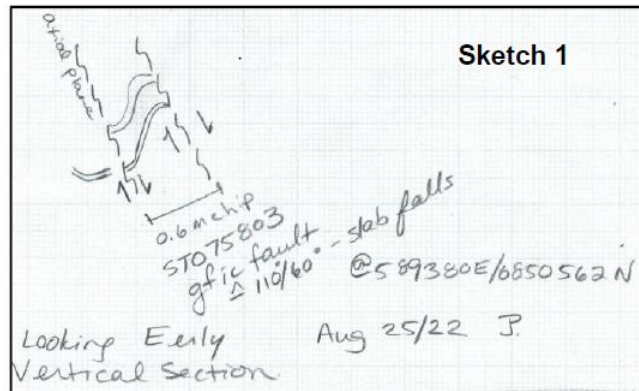 Sketch 1
axial plane
0.6 m chip
STO75803
gfic fault
≙ 110°/60° - slab falls
@ 589380E/6850562N
Looking Eerly
Vertical Section
Aug 25/22 J.